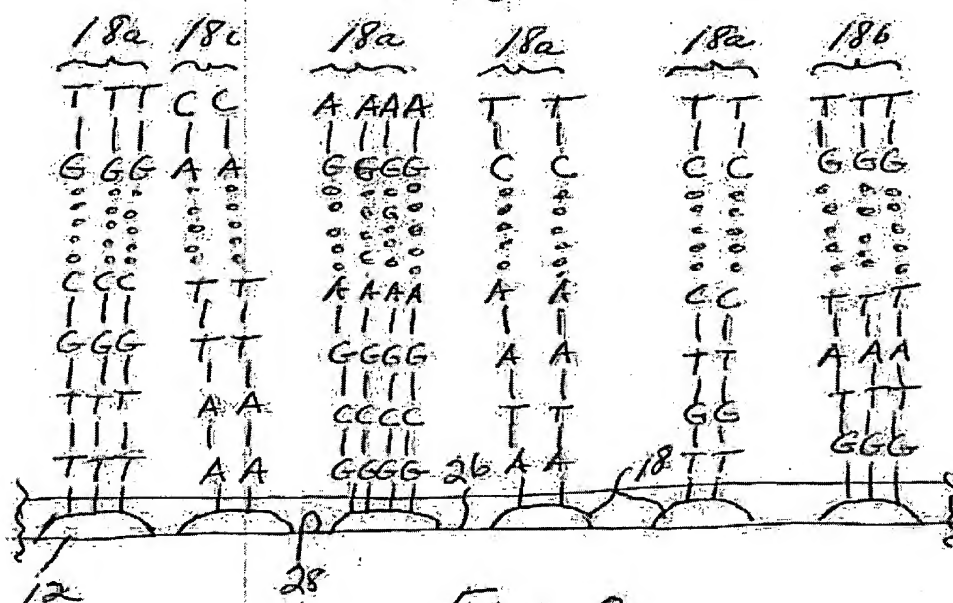 18a 18c 18a 18a 18a 18b
T T T C C A A A A T T T T T T T
G G G A A G G G G C C C C G G G
G
C
C C C T T A A A A A A C C T T T
G G G T T G G G G A A T T A A A
T T T A A C C C C T T G G T T T
T T T A A G G G G A A T T G G G
26 18
12 28